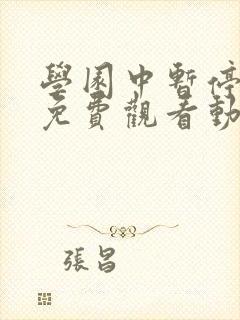 學園中暫停
免費觀看動
張昌